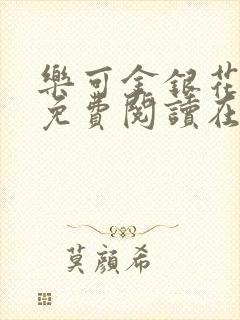 樂可金銀花
免費閱讀在
莫顏希